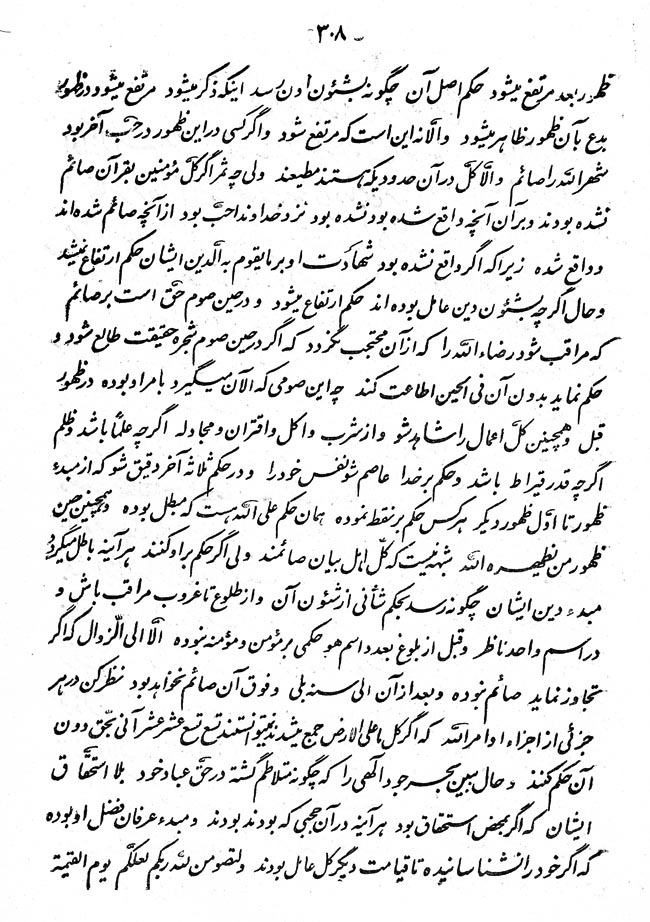 ۳۰۸
ظهور بعد مرتفع میشود حکم اصل آن چگونه بشئون اون رسد اینکه ذکر میشود مرتفع میشود در ظهور
بدع بآن ظهور ظاهر میشود والا نه این است که مرتفع شود و اگر کسی در این ظهور در حب آخر بود
شهر الله را صائم والا کل در آن حدود یکه هستند مطیعند ولی چه ثمر اگر کل مؤمنین بقرآن صائم
نشده بودند و بر آن آنچه واقع شده بود نشده بود نزد خداوند احب بود از آنچه صائم شده اند
و واقع شده زیرا که اگر واقع نشده بود شهادت او بر ما یقوم به الدین ایشان حکم ارتفاع نمیشد
و حال اگر چه بشئون دین عامل بوده اند حکم ارتفاع میشود و در حین صوم حق است بر صائم
که مراقب شود رضاء الله را که از آن محتجب نگردد که اگر در حین صوم شجره حقیقت طالع شود و
حکم نماید بدون آن فی الحین اطاعت کند چه این صومی که الآن میگیرد بامر او بوده در ظهور
قبل و همچنین کل اعمال را شاهد شو و از شرب و اکل و اقتران و مجادله اگر چه علما باشد و ظلم
اگر چه قدر قیراط باشد و حکم بر خدا عاصم شو نفس خود را و در حکم ثلاثه آخر دقیق شو که از مبدء
ظهور تا اول ظهور دیگر هر کس حکم بر نقط نموده همان حکم علی الله هست که مبطل بوده و همچنین حین
ظهور من یظهره الله شبهه نیست که کل اهل بیان صائمند ولی اگر حکم بر او کنند هر آینه باطل میگردد
مبدء دین ایشان چگونه رسد بحکم شأنی از شئون آن و از طلوع تا غروب مراقب باش و
در اسم واحد ناظر و قبل از بلوغ بعدد اسم هو حکمی بر مؤمن و مؤمنه نبوده الا الی الزوال که اگر
تجاوز نماید صائم نبوده و بعد از آن الی سنه بلی و فوق آن صائم نخواهد بود نظر کن در هر
جزئی از اجزاء اوامر الله که اگر کل ما علی الارض جمع میشدند نمیتوانستند تسع تسع عشر عشر آنی بحق دون
آن حکم کنند و حال ببین بحر جود الهی را که چگونه متلاطم گشته در حق عباد خود بلا استحقاق
ایشان که اگر بمحض استحقاق بود هر آینه در آن حجبی که بودند بودند و مبدء عرفان فضل او بوده
که اگر خود را نشناسانیده تا قیامت دیگر کل عامل بودند ولتصومن لله ربکم لعلکم یوم القیمة